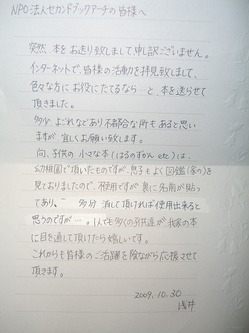 NPO法人セカンドブックアーチの皆様へ
突然、本をお送り致しまして、申訳ございません。
インターネットで、皆様の活動を拝見致しまして、
色々な方にお役にたてるなら…と、本を送らせて
頂きました。
多少、よごれなどあり不都合な所もあると思い
ますが、宜しくお願い致します。
尚、子供の小さな本(はるのずかんetc)は、
幼稚園で頂いたものですが、息子もよく図鑑(余り)を
見ておりましたので、未使用ですが裏に名前が貼っ
てあり、多分消して頂ければ使用出来ると
思うのですが…。1人でも多くの子供達が我家の本
に目を通して頂けたら嬉しいです。
これからも皆様のご活躍を陰ながら応援させて
頂きます。
2009.10.30
浅井